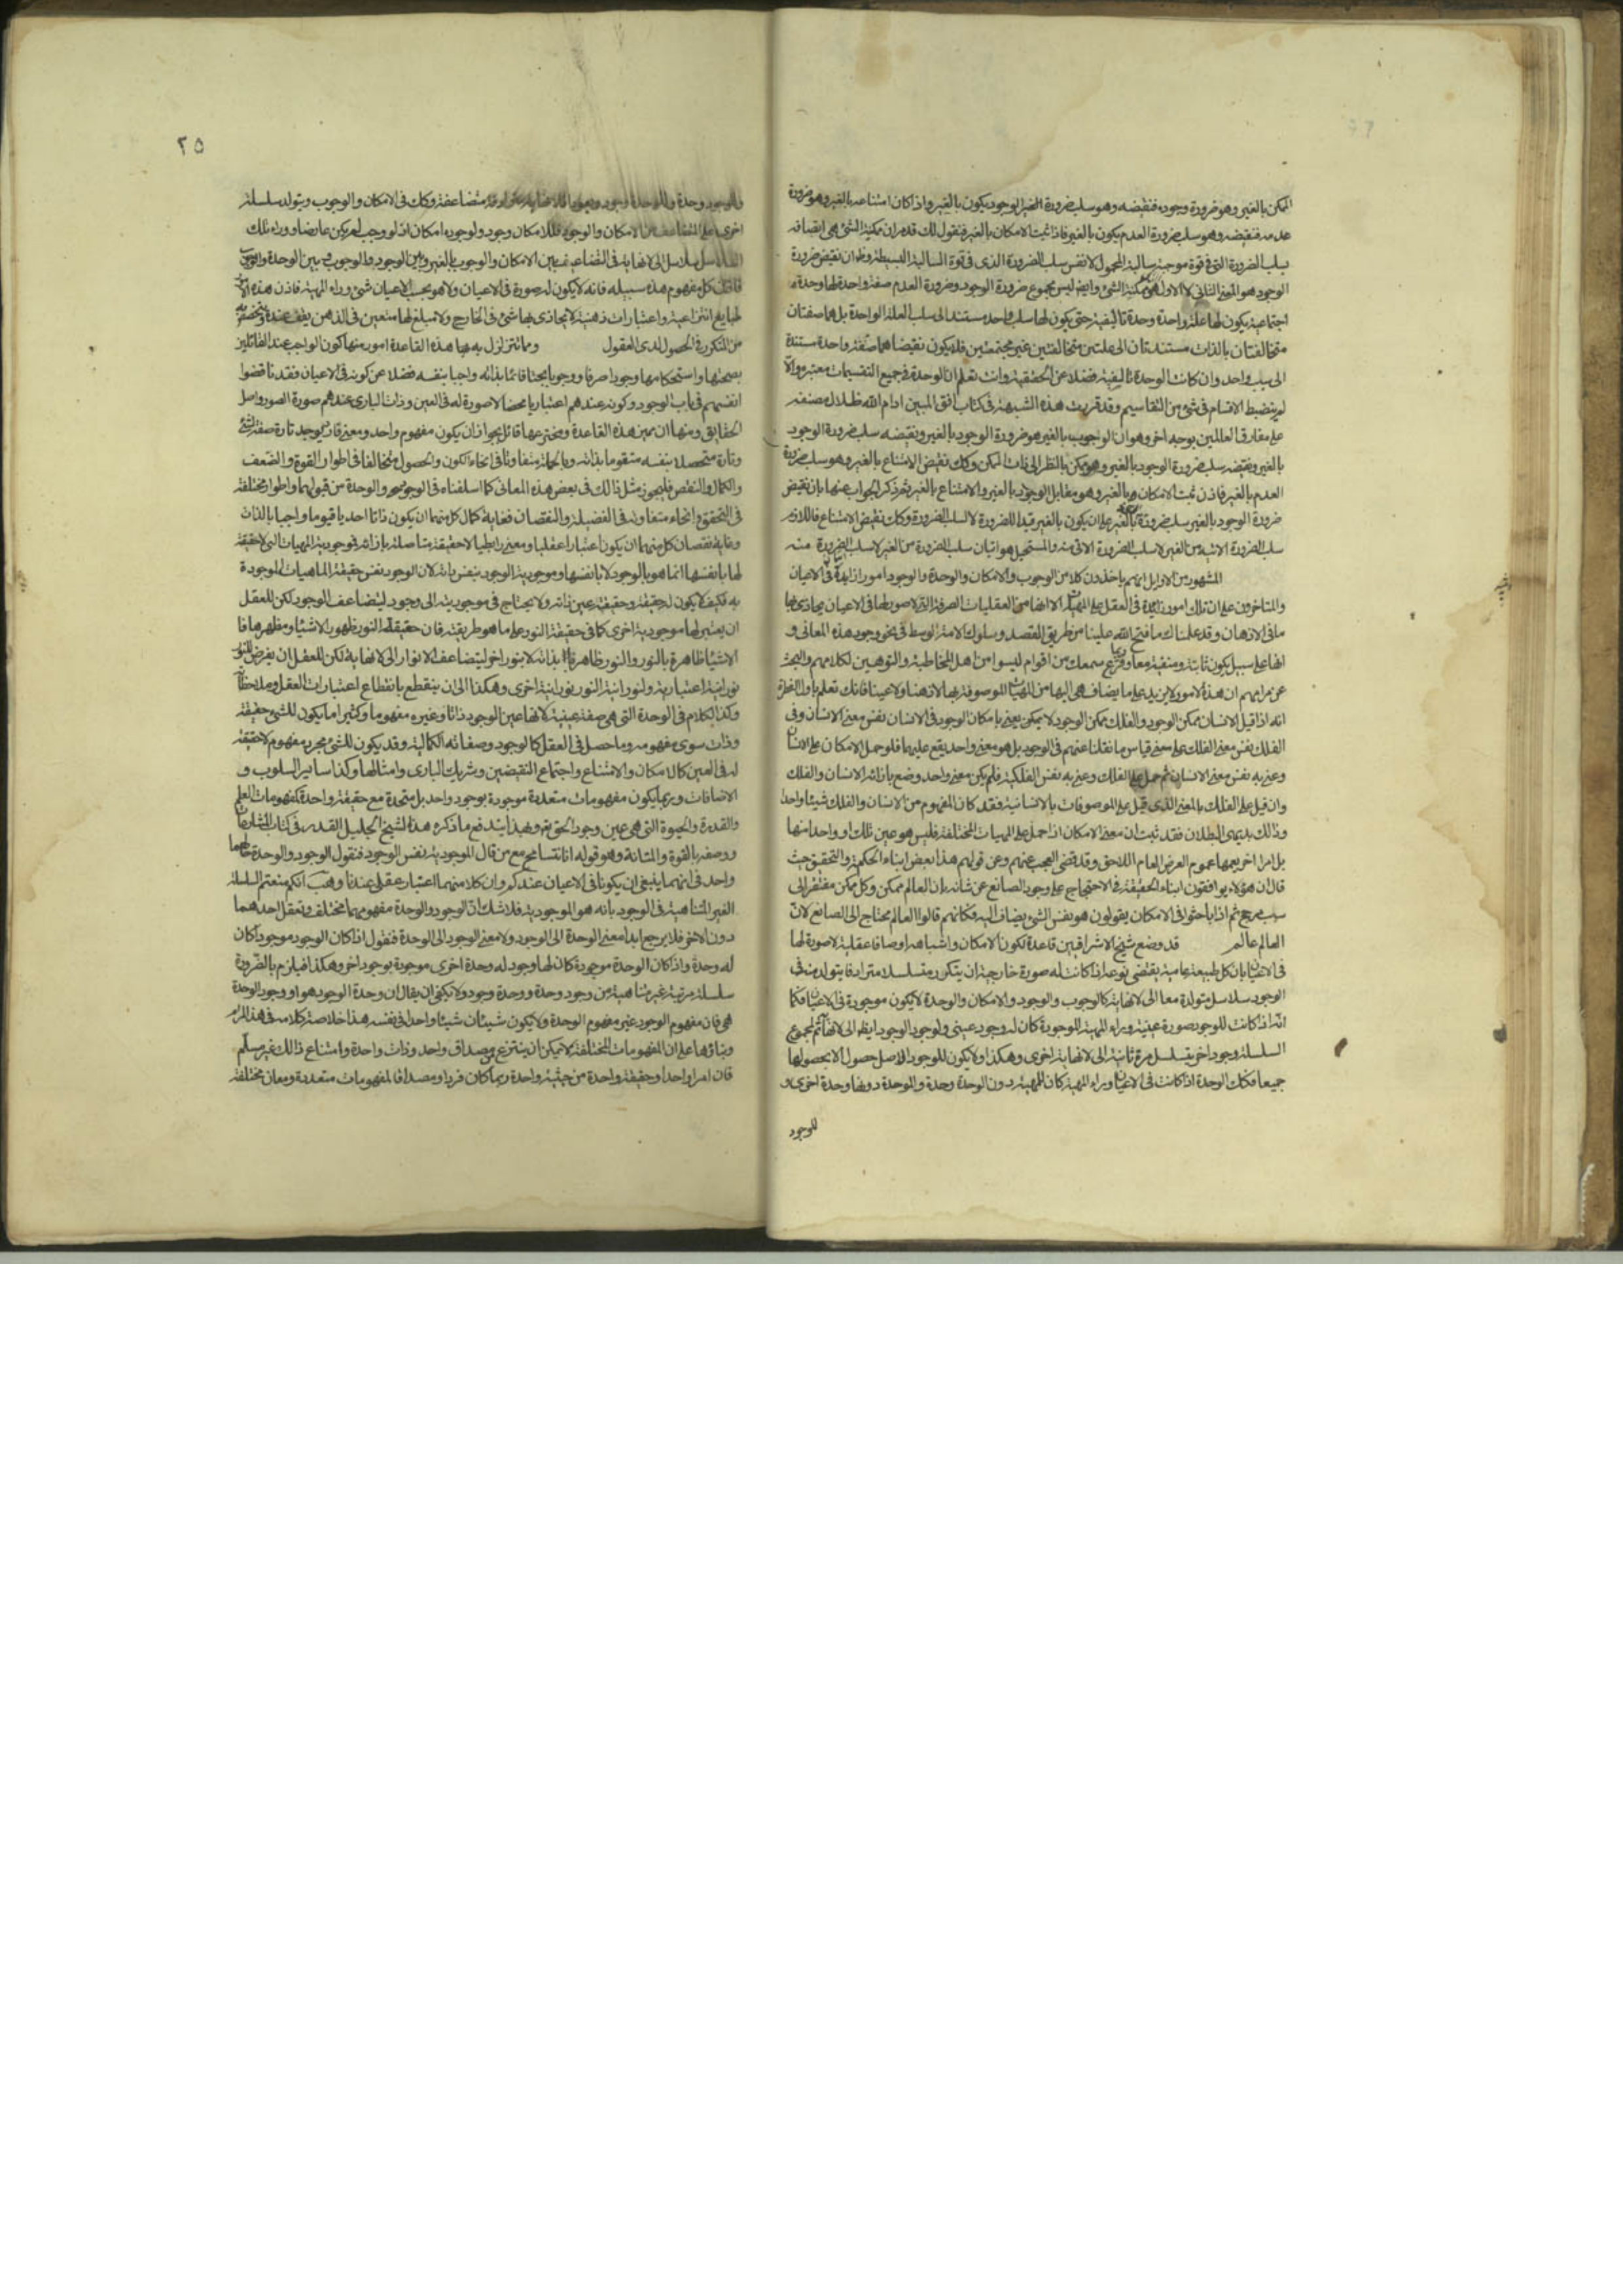 الممكن بالغير وهو ضرورة وجوده فنقيضه وهو سلب ضرورة الوجود يكون بالغير واذا كان امتناعه بالغير وهو ضرورة
عدمه فنقيضه وهو سلب ضرورة العدم يكون بالغير فاذا ثبت الامكان بالغير فنقول لك قد مر ان ممكنية الشئ هى اتصافه
بسلب الضرورة التى فى قوة موجبة سالبة المحمول لا نفس سلب الضرورة الذى فى قوة السالبة البسيطة وظ ان نقيض ضرورة
الوجود هو المعنى الثانى لا الاول هو ممكنية الشئ وايض ليس مجموع ضرورة الوجود وضرورة العدم صفة واحدة لها وحدة
اجتماعية يكون لها علة واحدة وحدة تاليفية حتى يكون لها سلب واحد مستند الى سلب العلة الواحدة بل هما صفتان
متخالفتان بالذات مستندتان الى علتين متخالفتين غير مجتمعتين فلا يكون نقيضاهما صفة واحدة مستندة
الى سلب واحد وان كانت الوحدة تاليفية فضلا عن الحقيقية وانت تعلم ان الوحدة فى جميع التقسيمات معتبرة والا
لم ينضبط الاقسام فى شئ من التقاسيم وقد قررت هذه الشبهة فى كتاب افق المبين ادام الله ظلال مصنفه
على مفارق العالمين بوجه اخر وهو ان الوجوب بالغير هو ضرورة الوجود بالغير ونقيضه سلب ضرورة الوجود
بالغير ونقيضه سلب ضرورة الوجود بالغير وهو ممكن بالنظر الى ذات الممكن وكك نقيض الامتناع بالغير وهو سلب ضرورة
العدم بالغير فاذن ثبت الامكان بالغير وهو مقابل الوجود بالغير والامتناع بالغير ثم ذكر الجواب عنها بان نقيض
ضرورة الوجود بالغير سلب ضرورته بالغير على ان يكون بالغير قيدا للضرورة لا لسلب الضرورة وكك نقيض الامتناع فاللازم
سلب الضرورة الاتية من الغير لا سلب الضرورة الاتى منه والمستحيل هو اتيان سلب الضرورة من الغير لا سلب الضرورة منه
المشهور من الاوايل انهم ياخذون كلا من الوجوب والامكان والوحدة والوجود امورا زايدة فى الاعيان
والمتاخرون على ان تلك امور زايدة فى العقل على المهيات الا انها من العقليات الصرفة التى لا صورة لها فى الاعيان يحاذى بها
ما فى الاذهان وقد علمناك ما فتح الله علينا من طريق القصد وسلوك الامة الوسط فى نحو وجود هذه المعانى و
انها على سبيل يكون ثابتة ومنفية معا وربما قرع سمعك من اقوام ليسوا من اهل المخاطبة والتوهين لكلامهم والبحث
عن مرامهم ان هذه الامور لا يزيد على ما يضاف هى اليها من المهيات الموصوفة بها لا ذهنا ولا عينا فانك تعلم باول الفطرة
انه اذا قيل الانسان ممكن الوجود والفلك ممكن الوجود لا يمكن يعنى بامكان الوجود فى الانسان نفس معنى الانسان وفى
الفلك نفس معنى الفلك على قياس ما نقلنا عنهم فى الوجود بل هو معنى واحد يقع عليهما فلو حمل الامكان على الانسان
وعنى به نفس معنى الانسان ثم حمل على الفلك وعنى به نفس الفلكية فلم يكن معنى واحد وضع بازائه الانسان والفلك
وان قيل على الفلك بالمعنى الذى قيل على الموصوفات بالانسانية فقد كان المفهوم من الانسان والفلك شيئا واحدا
وذلك بديهى البطلان فقد ثبت ان معنى الامكان اذا حمل على المهيات المختلفة فليس هو عين تلك او واحدا منها
بل امرا اخر يعمها عموم العرض العام اللاحق وقد قضى العجب عنهم وعن قولهم هذا بعض ابناء الحكمة والتحقيق حيث
قال ان هؤلاء يوافقون ابناء الحقيقة فى الاحتجاج على وجود الصانع عن شانه بان العالم ممكن وكل ممكن مفتقر الى
سبب مرجح ثم اذا باحثوا فى الامكان يقولون هو نفس الشئ يضاف اليه فكانهم قالوا العالم محتاج الى الصانع لان
العالم عالم قد وضع شيخ الاشراقيين قاعدة لكون الامكان واشباهه اوصافا عقلية لا صورة لها
فى الاعيان بان كل طبيعة عامية يقتضى نوعه اذا كانت له صورة خارجية ان يتكرر متسلسلا مترادفا يتولد منه فى
الوجود سلاسل متولدة معا الى لا نهاية كالوجوب والوجود والامكان والوحدة لا يكون موجودة فى الاعيان فكما
انه اذا كانت للوجود صورة عينية وراء المهية الموجودة كان له وجود عينى ولوجود الوجود ايض الى لا نهاية ثم لمجموع
السلسلة وجود اخر يتسلسل مرة ثانية الى لا نهاية اخرى وهكذا ولا يكون للوجود الاصل حصول الا بحصولها
جميعا فكك الوحدة اذا كانت فى الاعيان وراء المهية كان للمهية دون الوحدة وحدة وللوحدة دونها وحدة اخرى
للوجود
٢٥
وللوجود وحدة وللوحدة وجود متضاعفة وكك فى الامكان والوجوب ويتولد سلسلة
اخرى على التضاعف من الامكان والوجود فللامكان وجود ولوجوده امكان اذ لو وجب لم يكن عارضا ووراء تلك
السلاسل سلاسل الى لا نهاية فى التضاعيف بين الامكان والوجوب بالغير وبين الوجود والوجوب وبين الوحدة والوجوب
فاذن كل مفهوم هذه سبيله فانه لا يكون له صورة فى الاعيان ولا هو بحسب الاعيان شئ وراء المهية فاذن هذه
طبايع انتزاعية واعتبارات ذهنية لا يحاذى بها شئ فى الخارج ولا مبلغ لها متعين فى الذهن يقف عنده
من المتكرر فى الحصول لدى العقول ومما تزلزل به هذه القاعدة امور منها كون الواجب عند القائلين
بصحتها واستحكامها وجودا صرفا ووجوبا بحتا قائما بذاته واجبا بنفسه فضلا عن كونه فى الاعيان فقد ناقضوا
انفسهم فى باب الوجود وكونه عندهم اعتباريا محضا لا صورة له فى العين وذات البارى عندهم صورة الصور واصل
الحقايق ومنها ان مبنى هذه القاعدة ومخترعها قائل بجواز ان يكون مفهوم واحد ومعنى فارد يوجد تارة صفة لشئ
وتارة متحصلا بنفسه متقوما بذاته وبالجملة متفاوتا فى انحاء الكون والحصول متخالفا فى اطوار القوة والضعف
والكمال والنقص فليجوز مثل ذلك فى بعض هذه المعانى كما اسلفناه فى الوجود والوحدة من قبولهما واطوار مختلفة
فى التحقق وانحاء متفاوتة فى الفضيلة والنقصان فغاية كمال كل منهما ان يكون ذاتا احديا قيوما واجبا بالذات
وغاية نقصان كل منهما ان يكون اعتبارا عقليا ومعنى رابطيا لا حقيقة متاصلة بازائه فموجودية المهيات التى لا حقيقة
لها بانفسها انما هو بالوجود لا بانفسها وموجودية الوجود بنفس ذاته لان الوجود نفس حقيقة الماهيات الموجودة
به فكيف لا يكون له حقيقة وحقيقته عين ذاته ولا يحتاج فى موجوديته الى وجود ليتضاعف الوجود لكن للعقل
ان يعتبر لها موجودية اخرى كما فى حقيقة النور على ما هو طريقته فان حقيقة النور ظهور الاشيا ومظهرها فا
لاشيا ظاهرة بالنور والنور ظاهر بذاته لا بنور اخر ليتضاعف الانوار الى لا نهاية لكن للعقل ان يفرض للنور
نورانية اعتبارية ولنورانية النور نورانية اخرى وهكذا الى ان ينقطع بانقطاع اعتبارات العقل وملاحظاته
وكذا الكلام فى الوحدة التى هى صفة عينية لانها عين الوجود ذاتا وغيره مفهوما وكثيرا ما يكون للشئ حقيقة
وذات سوى مفهومه وما حصل فى العقل كالوجود وصفاته الكمالية وقد يكون للشئ مجرد مفهوم لا حقيقة
له فى العين كالامكان والامتناع واجتماع النقيضين وشريك البارى وامثالها وكذا ساير السلوب و
الاضافات وربما يكون مفهومات متعددة موجودة بوجود واحد بل متحدة مع حقيقة واحدة كمفهومات العلم
والقدرة والحيوة التى هى عين وجود الحق تع وبهذا يندفع ما ذكره هذا الشيخ الجليل القدر فى كتاب المشارع
ووصفه بالقوة والمتانة وهو قوله انا نتسامح مع من قال الموجودية نفس الوجود فنقول الوجود والوحدة حالهما
واحد فى انهما ينبغى ان يكونا فى الاعيان عندكم وان كلا منهما اعتبار عقلى عندنا وهب انكم منعتم السلسلة
الغير المتناهية فى الوجود بانه هو الموجودية فلا شك ان الوجود والوحدة مفهومهما مختلف ونعقل احدهما
دون الاخر فلا يرجع ابدا معنى الوحدة الى الوجود ولا معنى الوجود الى الوحدة فنقول اذا كان الوجود موجودا كان
له وحدة واذا كان الوحدة موجودة كان لها وجود له وحدة اخرى موجودة بوجود اخر وهكذا فيلزم بالضرورة
سلسلة مرتبة غير متناهية من وجود وحدة ووحدة وجود ولا يكفى ان يقال ان وحدة الوجود هو او وجود الوحدة
هى فان مفهوم الوجود غير مفهوم الوحدة ولا يكون شيئان شيئا واحدا فى نفسه هذا خلاصة كلامه فى هذا المرام
وبناؤها على ان المفهومات المختلفة لا يمكن ان ينتزع من مصداق واحد وذات واحدة وامتناع ذلك غير مسلم
فان امرا واحدا وحقيقة واحدة من حيثية واحدة ربما كان فردا ومصداقا لمفهومات متعددة ومعان مختلفة